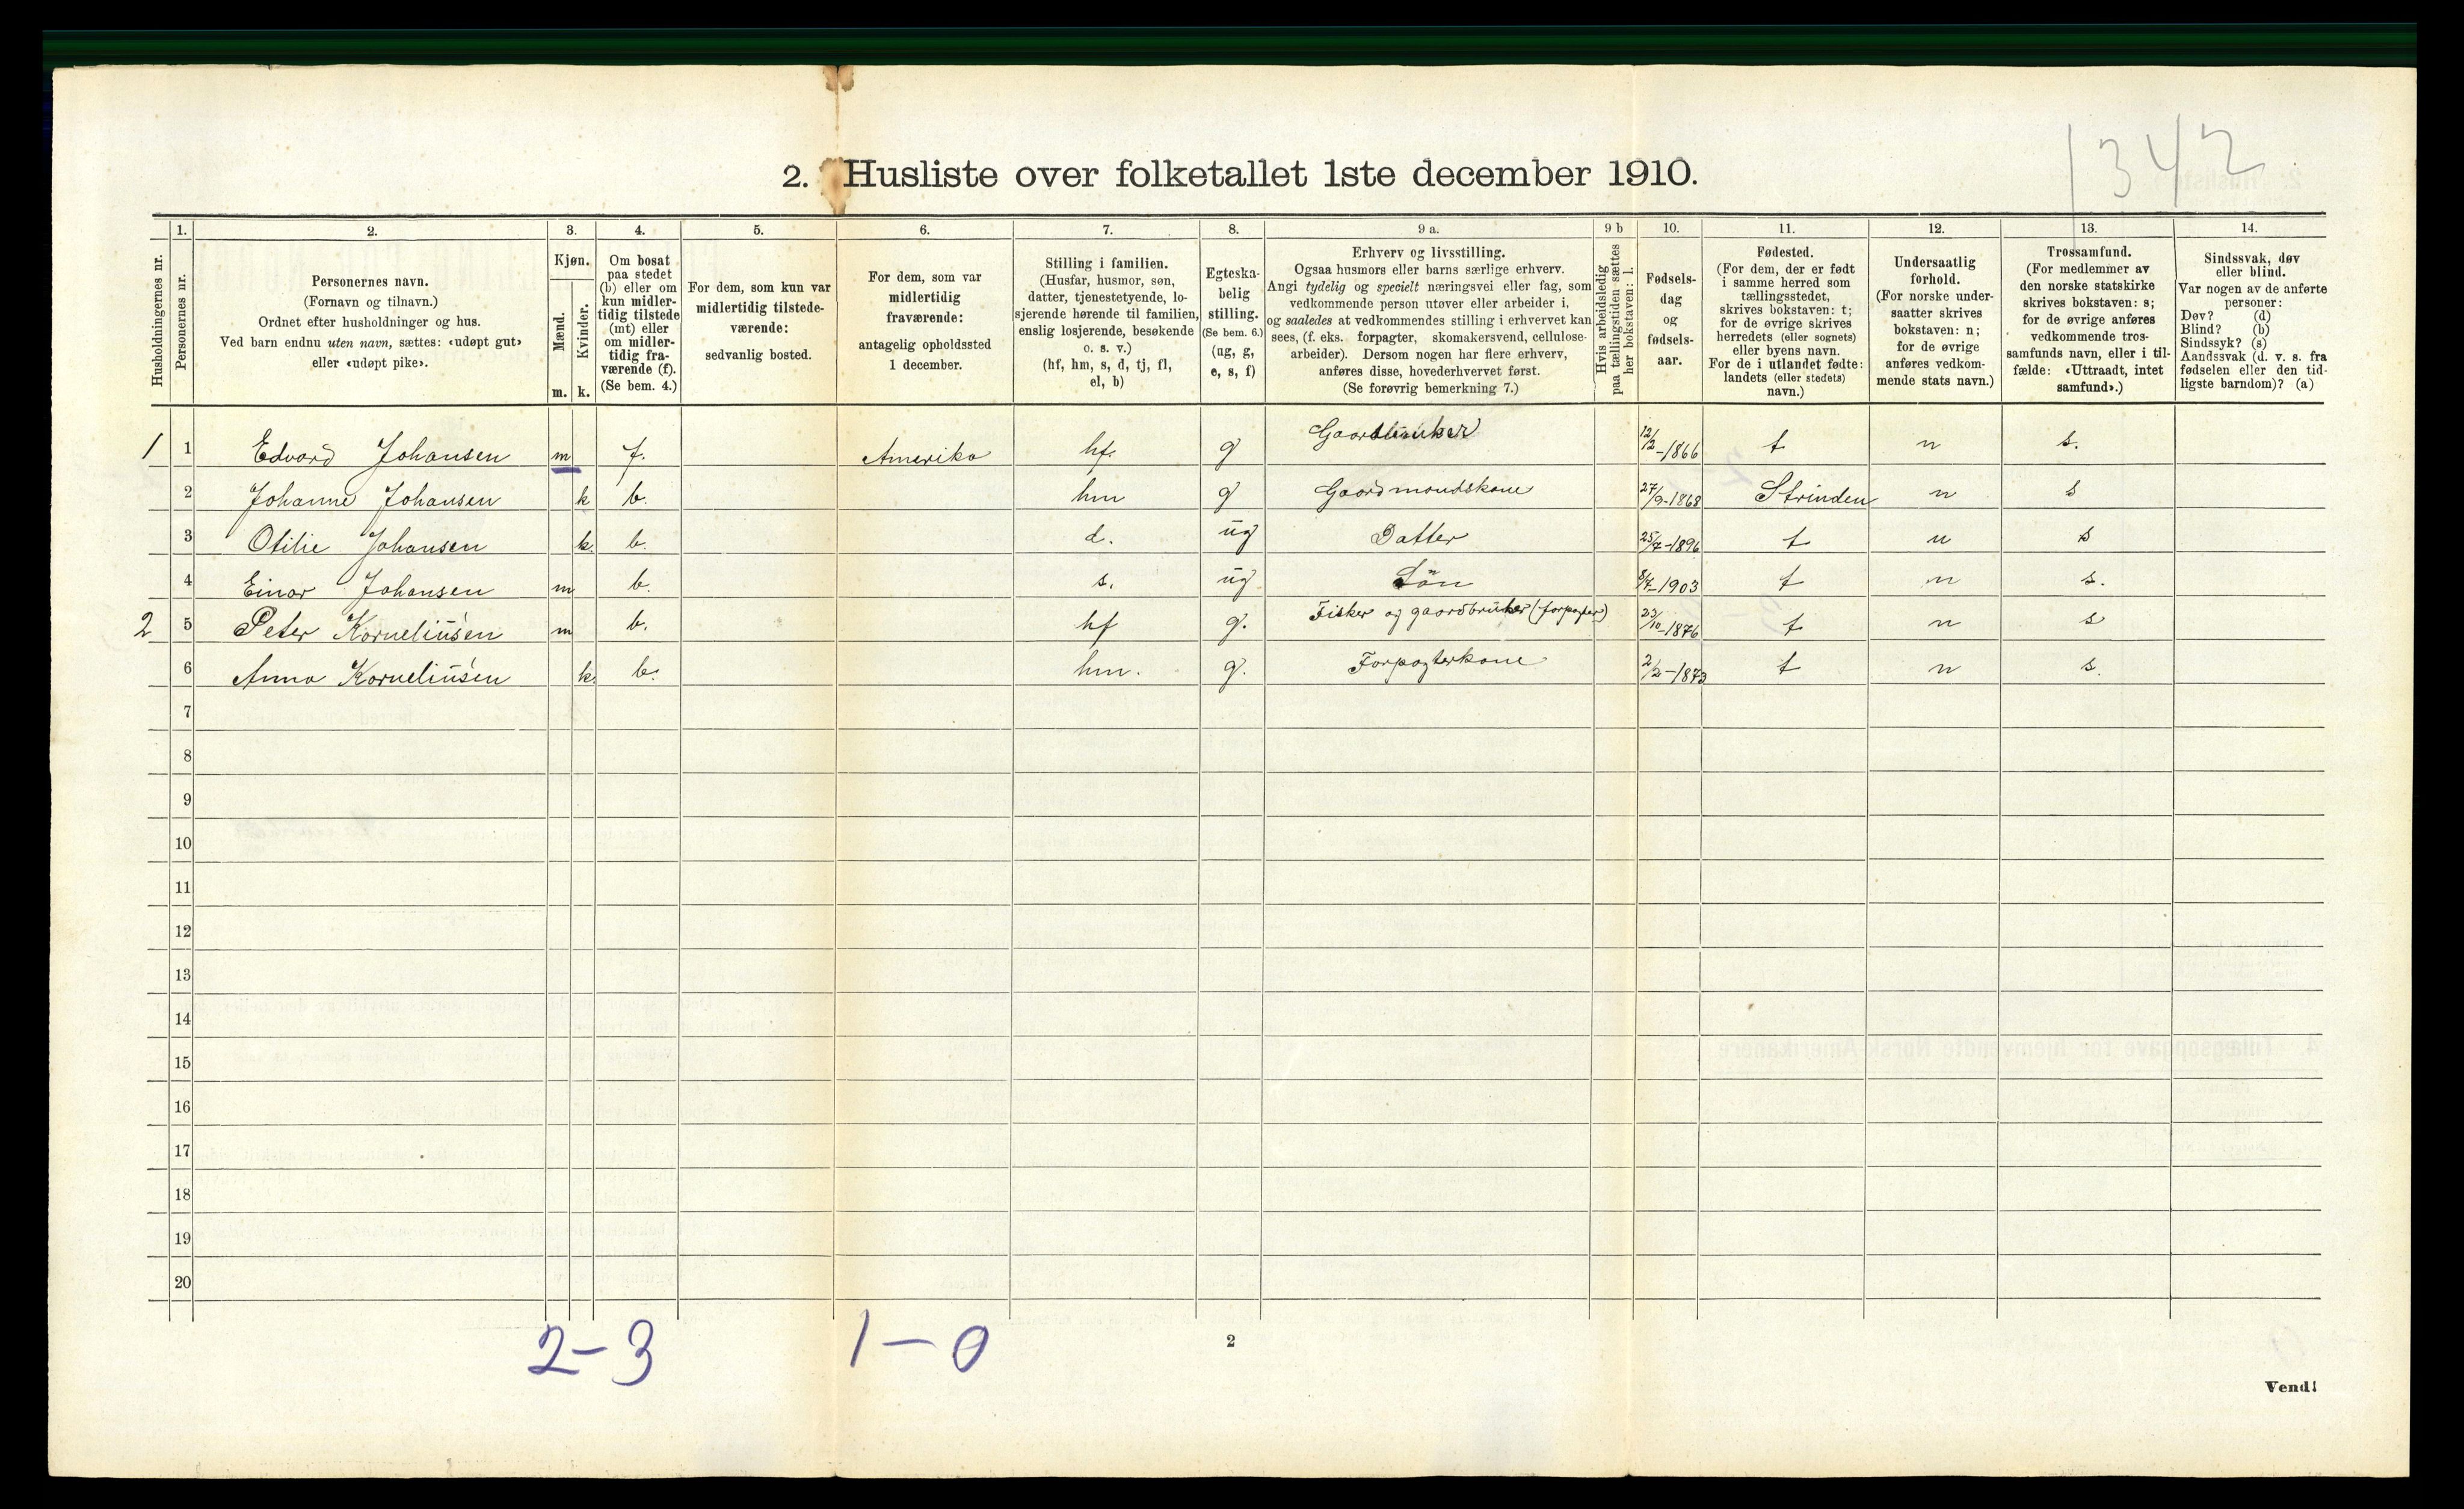 1342
2. Husliste over folketallet 1ste december 1910.
Husholdningernes nr.
1. Personernes nr.
2.
Personernes navn.
(Fornavn og tilnavn.)
Ordnet efter husholdninger og hus.
Ved barn endnu uten navn, sættes: «udøpt gut»
eller «udøpt pike».
3.
Kjøn.
Mænd. Kvinder.
m. k.
4.
Om bosat
paa stedet
(b) eller om
kun midler-
tidig tilstede
(mt) eller
om midler-
tidig fra-
værende (f).
(Se bem. 4.)
5.
For dem, som kun var
midlertidig tilstede-
værende:
sedvanlig bosted.
6.
For dem, som var
midlertidig
fraværende:
antagelig opholdssted
1 december.
7.
Stilling i familien.
(Husfar, husmor, søn,
datter, tjenestetyende, lo-
sjerende hørende til familien,
enslig losjerende, besøkende
o. s. v.)
(hf, hm, s, d, tj, fl,
el, b)
8.
Egteska-
belig
stilling.
(Se bem. 6.)
(ug, g,
e, s, f)
9 a.
Erhverv og livsstilling.
Ogsaa husmors eller barns særlige erhverv.
Angi tydelig og specielt næringsvei eller fag, som
vedkommende person utøver eller arbeider i,
og saaledes at vedkommendes stilling i erhvervet kan
sees, (f. eks. forpagter, skomakersvend, cellulose-
arbeider). Dersom nogen har flere erhverv,
anføres disse, hovederhvervet først.
(Se forøvrig bemerkning 7.)
9 b
Hvis arbeidsledig
paa tællingstiden sættes
her bokstaven: l.
10.
Fødsels-
dag
og
fødsels-
aar.
11.
Fødested.
(For dem, der er født
i samme herred som
tællingsstedet,
skrives bokstaven: t;
for de øvrige skrives
herredets (eller sognets)
eller byens navn.
For de i utlandet fødte:
landets (eller stedets)
navn.)
12.
Undersaatlig
forhold.
(For norske under-
saatter skrives
bokstaven: n;
for de øvrige
anføres vedkom-
mende stats navn.)
13.
Trossamfund.
(For medlemmer av
den norske statskirke
skrives bokstaven: s;
for de øvrige anføres
vedkommende tros-
samfunds navn, eller i til-
fælde: «Uttraadt, intet
samfund».)
14.
Sindssvak, døv
eller blind.
Var nogen av de anførte
personer:
Døv? (d)
Blind? (b)
Sindssyk? (s)
Aandssvak (d. v. s. fra
fødselen eller den tid-
ligste barndom)? (a)
1 1 Edvard Johansen m f. Amerika hf. g Gaardbruker 12/12-1866 t n s.
2 Johanne Johansen k b. hm g Gaardmandskone 27/9-1868 Strinden n s
3 Otilie Johansen k. b. d. ug Datter 25/7-1896 t n s
4 Einar Johansen m b. s. ug Søn 8/7-1903 t n s.
2 5 Peter Korneliusen m b. hf g. Fisker og gaardbruker (forpagter) 23/10-1876 t n s
6 Anna Korneliusen k. b. hm. g. Forpagterkone 2/2-1873 t n s.
7
8
9
10
11
12
13
14
15
16
17
18
19
20
2-3 1-0
2
Vend!